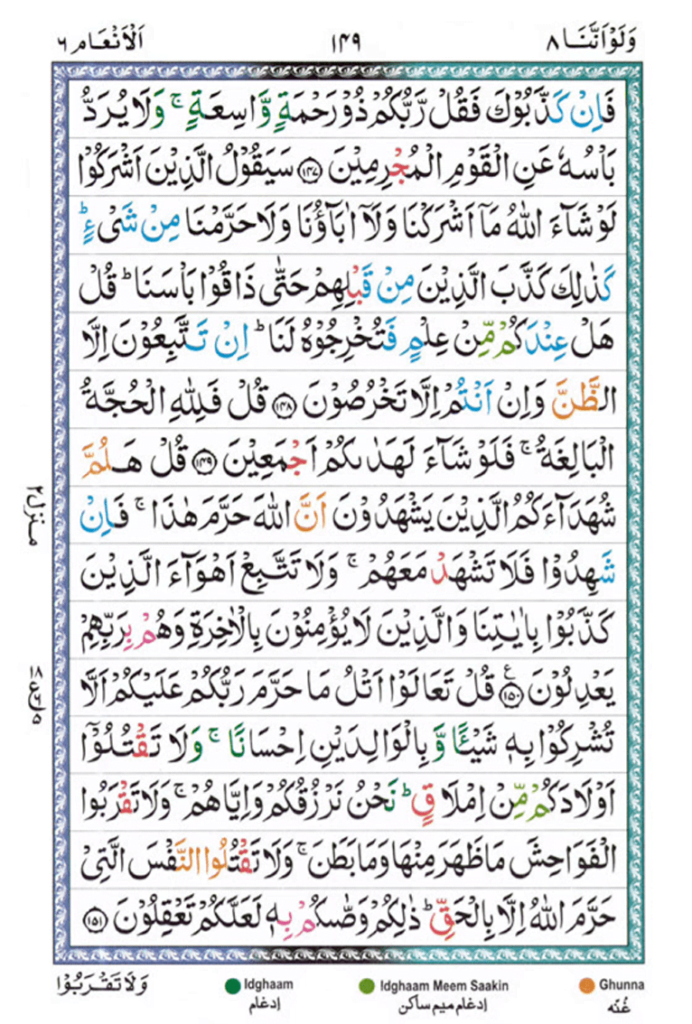 وَلَوْاَنَّنَا ٨ ١٤٩ اَلْاَنْعَام ٦
فَاِنْ كَذَّبُوْكَ فَقُلْ رَّبُّكُمْ ذُوْ رَحْمَةٍ وَّاسِعَةٍ ۚ وَلَا يُرَدُّ
بَاْسُهٗ عَنِ الْقَوْمِ الْمُجْرِمِيْنَ ﴿١٤٧﴾ سَيَقُوْلُ الَّذِيْنَ اَشْرَكُوْا
لَوْ شَآءَ اللّٰهُ مَاۤ اَشْرَكْنَا وَلَاۤ اٰبَآؤُنَا وَلَا حَرَّمْنَا مِنْ شَىْءٍ ؕ
كَذٰلِكَ كَذَّبَ الَّذِيْنَ مِنْ قَبْلِهِمْ حَتّٰى ذَاقُوْا بَاْسَنَا ؕ قُلْ
هَلْ عِنْدَكُمْ مِّنْ عِلْمٍ فَتُخْرِجُوْهُ لَنَا ؕ اِنْ تَتَّبِعُوْنَ اِلَّا
الظَّنَّ وَاِنْ اَنْتُمْ اِلَّا تَخْرُصُوْنَ ﴿١٤٨﴾ قُلْ فَلِلّٰهِ الْحُجَّةُ
الْبَالِغَةُ ۚ فَلَوْ شَآءَ لَهَدٰٮكُمْ اَجْمَعِيْنَ ﴿١٤٩﴾ قُلْ هَلُمَّ
شُهَدَآءَكُمُ الَّذِيْنَ يَشْهَدُوْنَ اَنَّ اللّٰهَ حَرَّمَ هٰذَا ۚ فَاِنْ
شَهِدُوْا فَلَا تَشْهَدْ مَعَهُمْ ۚ وَلَا تَتَّبِعْ اَهْوَآءَ الَّذِيْنَ
كَذَّبُوْا بِاٰيٰتِنَا وَالَّذِيْنَ لَا يُؤْمِنُوْنَ بِالْاٰخِرَةِ وَهُمْ بِرَبِّهِمْ
يَعْدِلُوْنَ ﴿١٥٠﴾ ع قُلْ تَعَالَوْا اَتْلُ مَا حَرَّمَ رَبُّكُمْ عَلَيْكُمْ اَلَّا
تُشْرِكُوْا بِهٖ شَيْـًٔا وَّ بِالْوَالِدَيْنِ اِحْسَانًا ۚ وَلَا تَقْتُلُوْۤا
اَوْلَادَكُمْ مِّنْ اِمْلَاقٍ ؕ نَحْنُ نَرْزُقُكُمْ وَاِيَّاهُمْ ۚ وَلَا تَقْرَبُوا
الْفَوَاحِشَ مَا ظَهَرَ مِنْهَا وَمَا بَطَنَ ۚ وَلَا تَقْتُلُوا النَّفْسَ الَّتِىْ
حَرَّمَ اللّٰهُ اِلَّا بِالْحَقِّ ؕ ذٰلِكُمْ وَصّٰٮكُمْ بِهٖ لَعَلَّكُمْ تَعْقِلُوْنَ ﴿١٥١﴾
منزل ٢
وَلَا تَقْرَبُوْا
Idghaam
ادغام
Idghaam Meem Saakin
ادغام میم ساکن
Ghunna
غُنّه